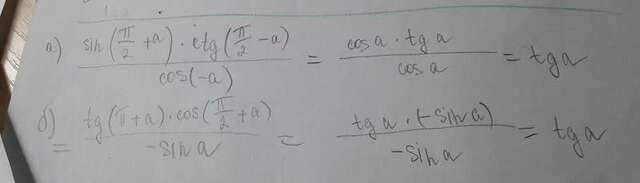 а) sin(π/2 + a) · ctg(π/2 - a) / cos(-a) = cos a · tg a / cos a = tg a
б) = tg(π + a) · cos(π/2 + a) / -sin a = tg a · (-sin a) / -sin a = tg a